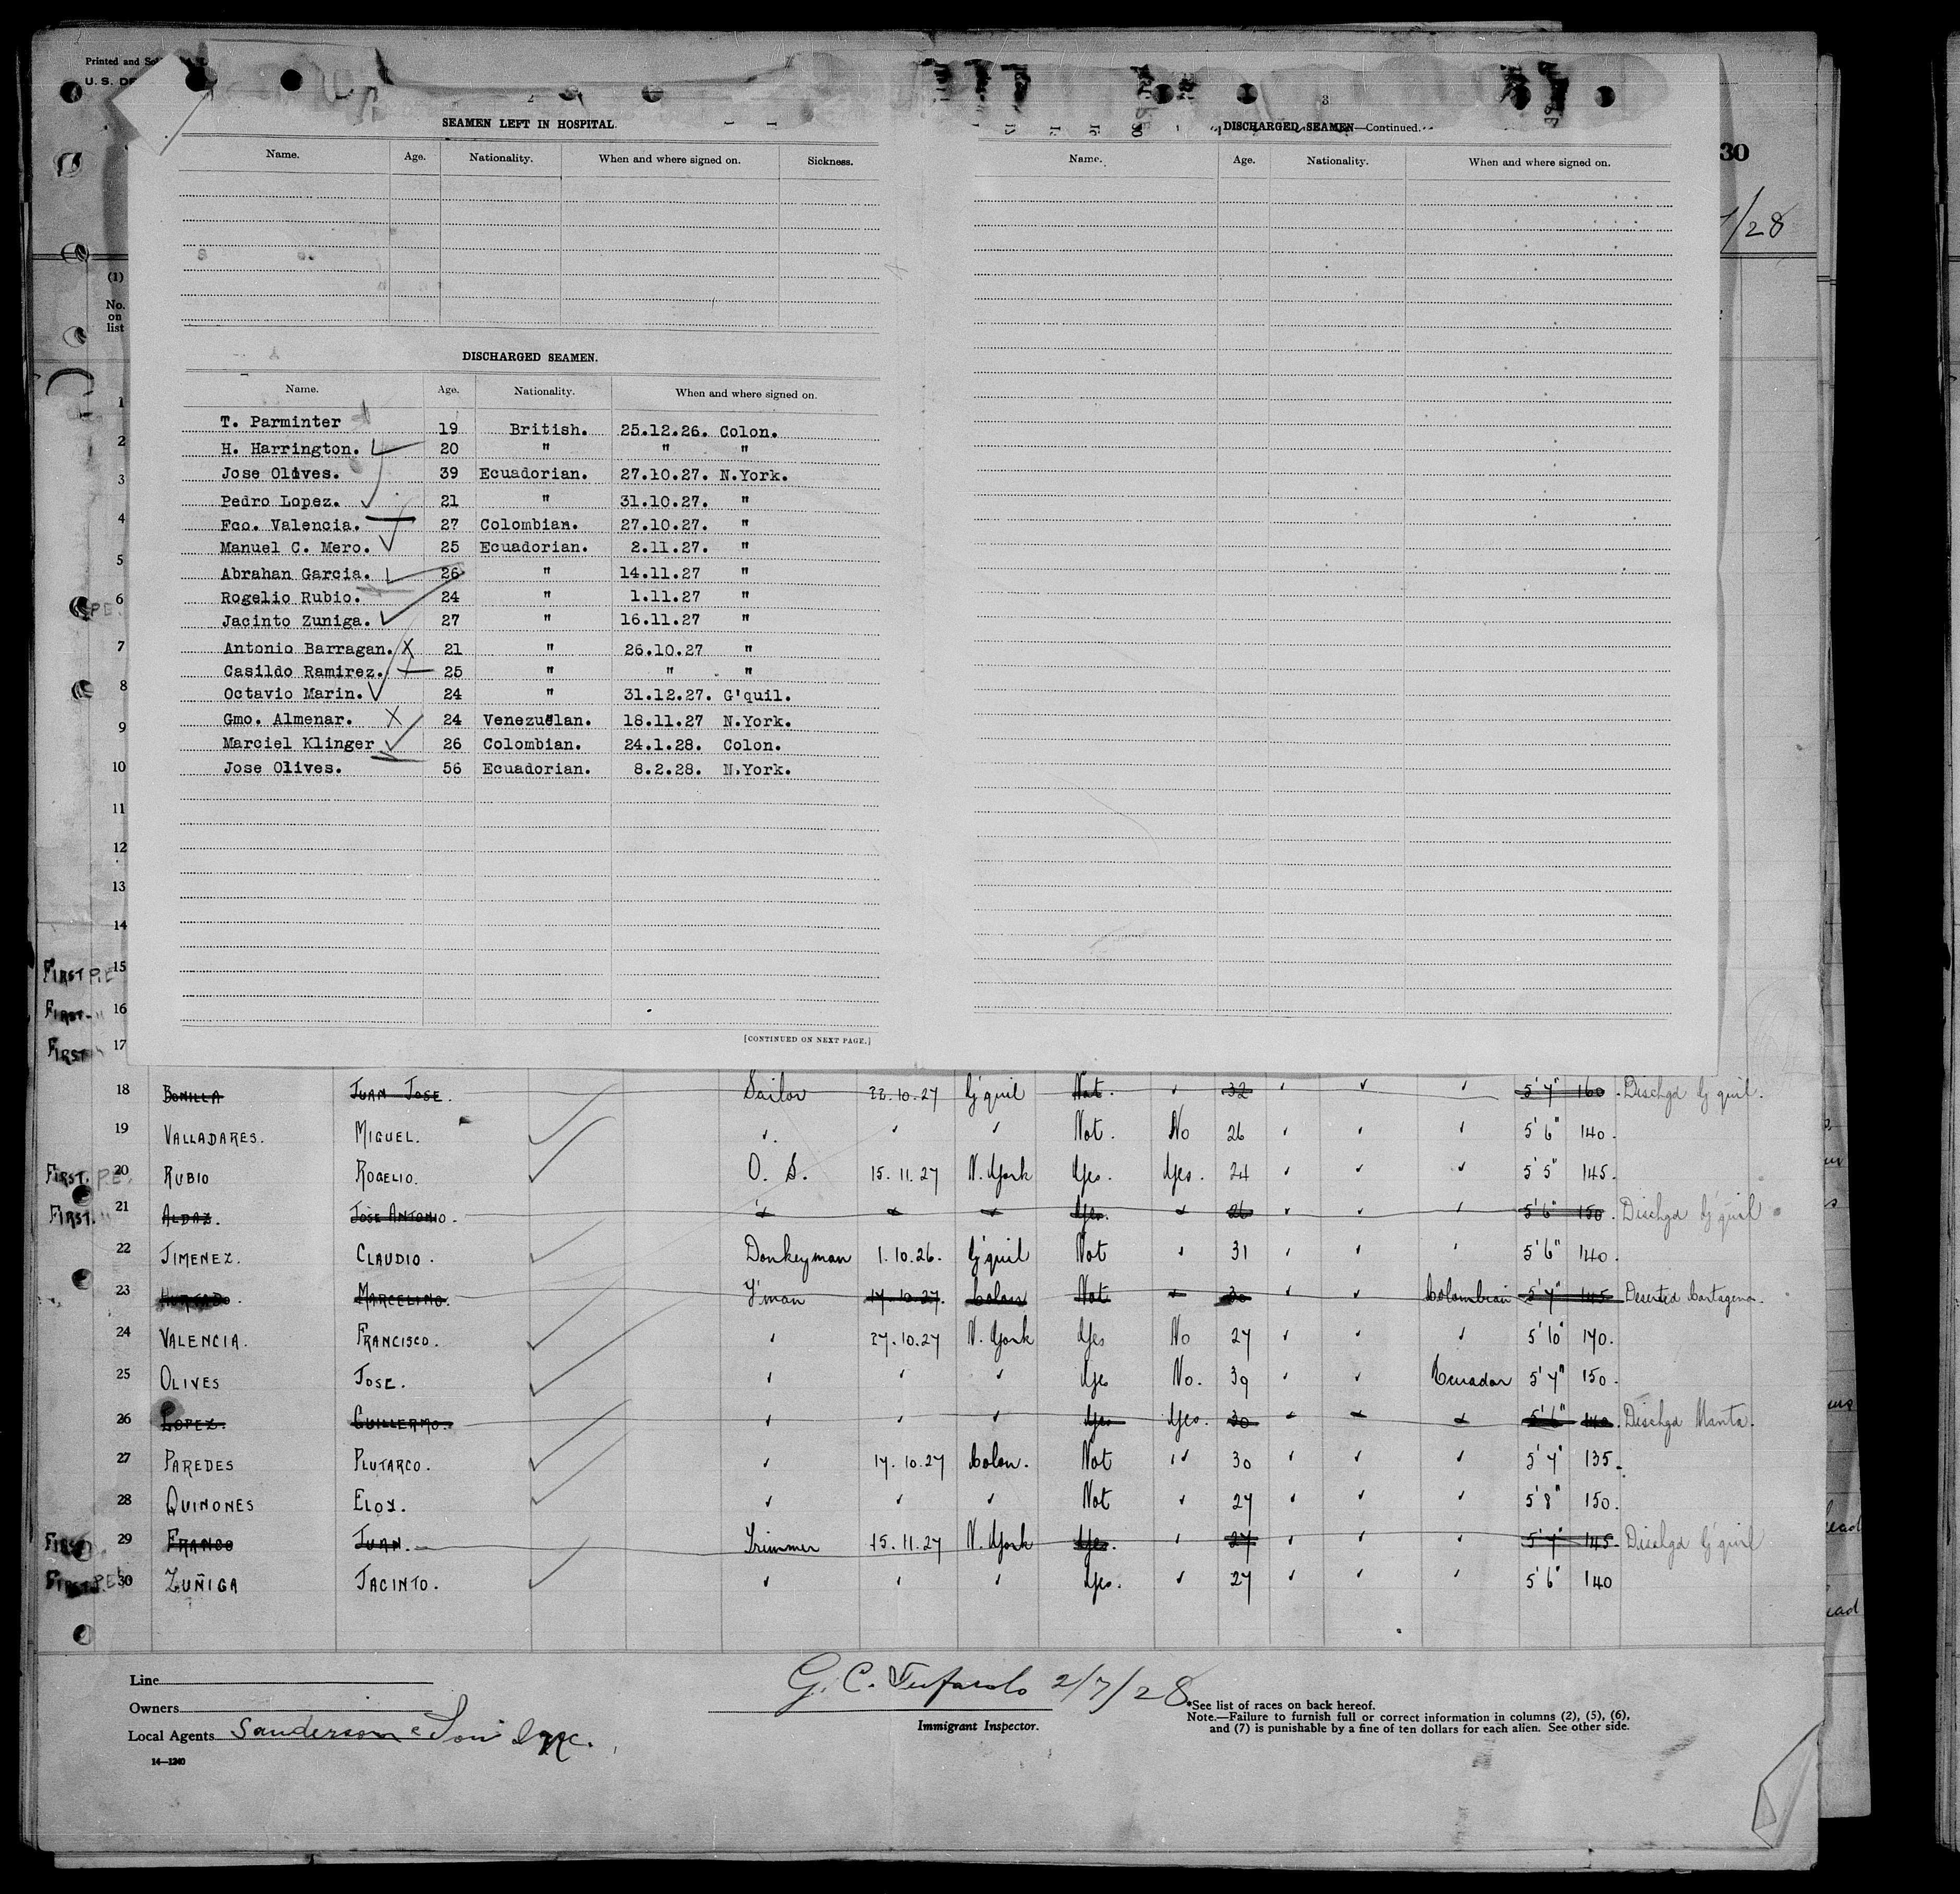 Printed and
U. S. DE
2
3
SEAMEN LEFT IN HOSPITAL.
DISCHARGED SEAMEN—Continued.
Name. Age. Nationality. When and where signed on. Sickness.
Name. Age. Nationality. When and where signed on.
30
/28
(1)
No. on list
DISCHARGED SEAMEN.
Name. Age. Nationality. When and where signed on.
T. Parminter 19 British. 25.12.26. Colon.
H. Harrington. 20 " " "
Jose Olives. 39 Ecuadorian. 27.10.27. N.York.
Pedro Lopez. 21 " 31.10.27. "
Fco. Valencia. 27 Colombian. 27.10.27. "
Manuel C. Mero. 25 Ecuadorian. 2.11.27. "
Abrahan Garcia. 26 " 14.11.27 "
Rogelio Rubio. 24 " 1.11.27 "
Jacinto Zuniga. 27 " 16.11.27 "
Antonio Barragan. X 21 " 26.10.27 "
Casildo Ramirez. 25 " " "
Octavio Marin. 24 " 31.12.27. G'quil.
Gmo. Almenar. X 24 Venezuelan. 18.11.27 N.York.
Marciel Klinger 26 Colombian. 24.1.28. Colon.
Jose Olives. 56 Ecuadorian. 8.2.28. N.York.
[CONTINUED ON NEXT PAGE.]
1
2
3
4
5
P.E. 6
7
8
9
10
11
12
13
14
FIRST P.E. 15
FIRST " 16
FIRST " 17
18 BONILLA JUAN JOSE. Sailor 22.10.27 G'quil Not. ✓ 32 ✓ ✓ ✓ 5' 7" 160 Dischgd G'quil.
19 VALLADARES. MIGUEL. ✓ ✓ ✓ ✓ Not. No 26 ✓ ✓ ✓ 5' 6" 140.
FIRST. P.E. 20 RUBIO ROGELIO. ✓ O. S. 15.11.27 N. York Yes. Yes. 24 ✓ ✓ ✓ 5' 5" 145.
FIRST. " 21 ALDAZ. JOSE ANTONIO. ✓ ✓ ✓ Yes. ✓ 26 ✓ ✓ ✓ 5' 6" 150. Dischgd G'quil
22 JIMENEZ. CLAUDIO. ✓ Donkeyman 1.10.26. G'quil Not ✓ 31 ✓ ✓ ✓ 5' 6" 140.
23 HURTADO. MARCELINO. F'man 17.10.27. Colon Not ✓ 30 ✓ ✓ Colombian 5' 7" 145 Deserted Cartagena.
24 VALENCIA. FRANCISCO. ✓ ✓ 27.10.27 N. York Yes No 27 ✓ ✓ ✓ 5' 10" 170.
25 OLIVES JOSE. ✓ ✓ ✓ ✓ Yes No. 39 ✓ ✓ Ecuador 5' 7" 150.
26 LOPEZ. GUILLERMO. ✓ ✓ ✓ Yes Yes. 30 ✓ ✓ ✓ 5' 6" 140. Dischgd Manta.
27 PAREDES PLUTARCO. ✓ ✓ 17.10.27 Colon. Not ✓ 30 ✓ ✓ ✓ 5' 7" 135.
28 QUINONES ELOY. ✓ ✓ ✓ ✓ Not ✓ 27 ✓ ✓ ✓ 5' 8" 150.
FIRST 29 FRANCO JUAN. Trimmer 15.11.27 N. York Yes. ✓ 27 ✓ ✓ ✓ 5' 7" 145. Dischgd G'quil
FIRST P.E. 30 ZUÑIGA JACINTO. ✓ ✓ ✓ ✓ Yes. ✓ 27 ✓ ✓ ✓ 5' 6" 140
Line
Owners
Local Agents Sanderson & Son Inc.
14—1240
G. C. Tufarolo 2/7/28
Immigrant Inspector.
*See list of races on back hereof.
Note.—Failure to furnish full or correct information in columns (2), (5), (6),
and (7) is punishable by a fine of ten dollars for each alien. See other side.